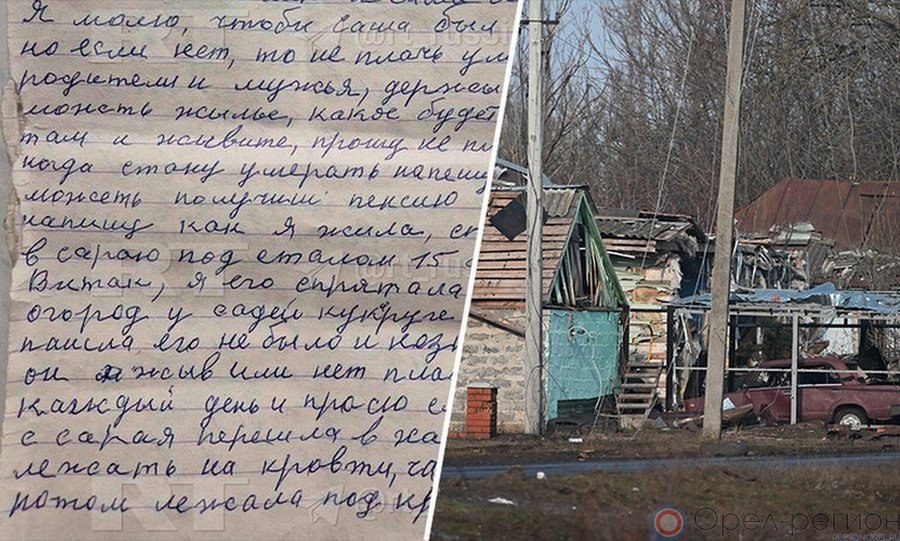 Я молю, чтоби Саша был
но если нет, то не плачь
родители и мужья,
можеть жылье, какое будет
там и жывите, прошу не
когда стану умерать напешу
можеть получиш пенсию
напишу как я жила,
в сараю под сталом 15
Витак, я его спрятала
огород у садей кукрузе
пашла, его не было и
он жыв или нет
каждый день и прошу
с сарая перешла в
лежать на кровти,
потом лежала под
RT
Орел-регион